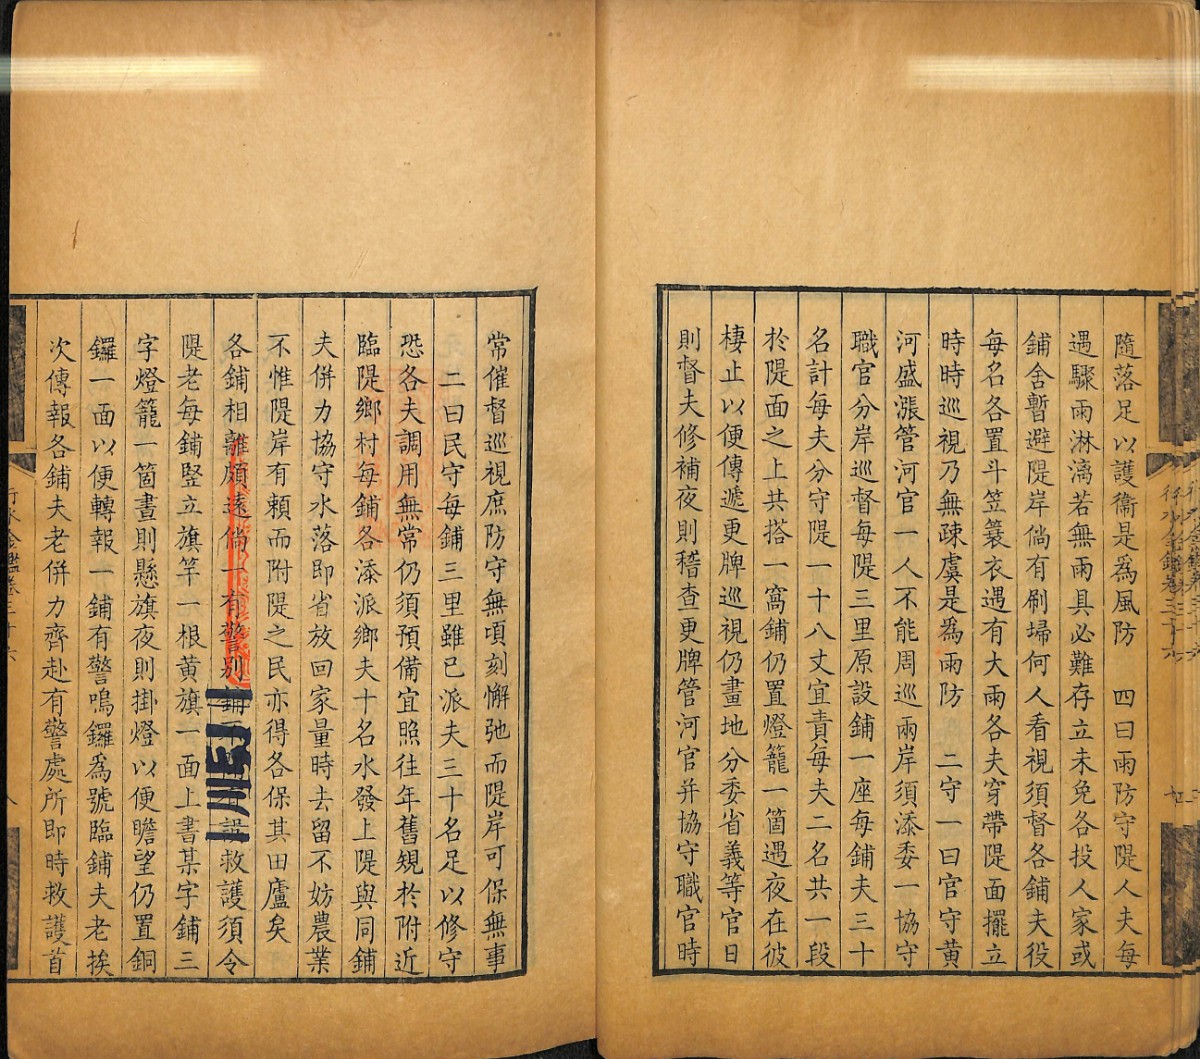 隨落足以護衞是爲風防　四曰雨防守隄人夫每
遇驟雨淋漓若無雨具必難存立未免各投人家或
鋪舍暫避隄岸倘有刷埽何人看視須督各鋪夫役
每名各置斗笠簑衣遇有大雨各夫穿帶隄面擺立
時時巡視乃無疎虞是爲雨防　二守一曰官守黃
河盛漲管河官一人不能周巡兩岸須添委一協守
職官分岸巡督每隄三里原設鋪一座每鋪夫三十
名計每夫分守隄一十八丈宜責每夫二名共一段
於隄面之上共搭一窩鋪仍置燈籠一箇遇夜在彼
棲止以便傳遞更牌巡視仍畫地分委省義等官日
則督夫修補夜則稽查更牌管河官并協守職官時
常催督巡視庶防守無頃刻懈弛而隄岸可保無事
二曰民守每鋪三里雖已派夫三十名足以修守
恐各夫調用無常仍須預備宜照往年舊規於附近
臨隄鄉村每鋪各添派鄉夫十名水發上隄與同鋪
夫併力協守水落即省放回家量時去留不妨農業
不惟隄岸有賴而附隄之民亦得各保其田廬矣
各鋪相離頗遠倘一有警別鋪救護須令
隄老每鋪竪立旗竿一根黃旗一面上書某字鋪三
字燈籠一箇晝則懸旗夜則掛燈以便瞻望仍置銅
鑼一面以便轉報一鋪有警鳴鑼爲號臨鋪夫老挨
次傳報各鋪夫老併力齊赴有警處所即時救護首
行水金鑑卷三十六
八